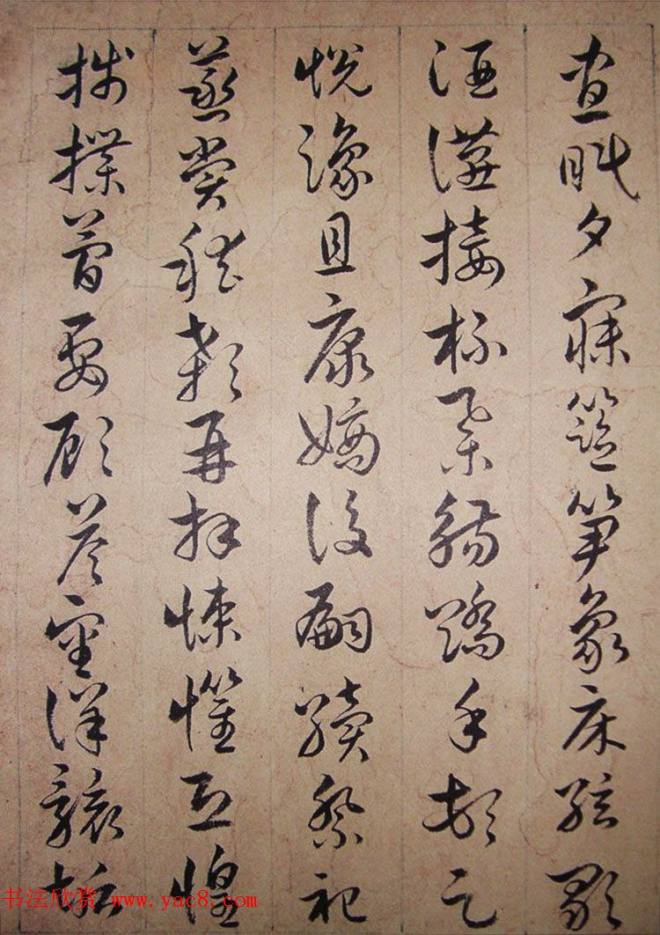 晝眠夕寐籃笋象床絃歌
酒讌接杯舉觴矯手頓足
悅豫且康嫡後嗣續祭祀
蒸嘗稽顙再拜悚懼恐惶
牋牒簡要顧答審詳骸垢
书法欣赏 www.yac8.com